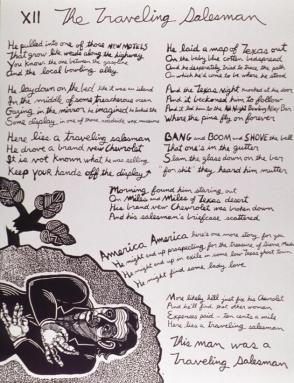 XII The Traveling Salesman
He pulled into one of those NEW MOTELS
That grow like weeds along the highway
You know the one between the gasoline
And the local bowling alley
He lay down on the bed like it was an island
In the middle of some treacherous ocean
Crying in the mirror he imagined he looked like
Some display in one of those roadside wax museums
Here lies a traveling salesman
He drove a brand new Chevrolet
It is not known what he was selling
Keep your hands off the display
He laid a map of Texas out
On the baby blue cotton bedspread
And he desperately tried to trace the path
On which he'd come to be where he stood
And the Texas Night knocked at his door
And it beckoned him to follow
And it led him to the All Night Bowling Alley Bar
Where the pins fly on forever
BANG and BOOM and SHOVE the ball
That one's in the gutter
Slam the glass down on the bar
"for shit" they heard him mutter
Morning found him staring out
On Miles and Miles of Texas desert
His brand new Chevrolet was broken down
And his salesman's briefcase scattered
America America here's one more story for you
He might end up prospecting for the treasure of Sierra Madre
He might end up in exile in some low Texas ghost town
He might find some lady love
More likely he'll just fix his Chevrolet
And he'll find just other women,
Expenses paid - ten cents a mile
Here lies a traveling salesman
This man was a
Traveling Salesman